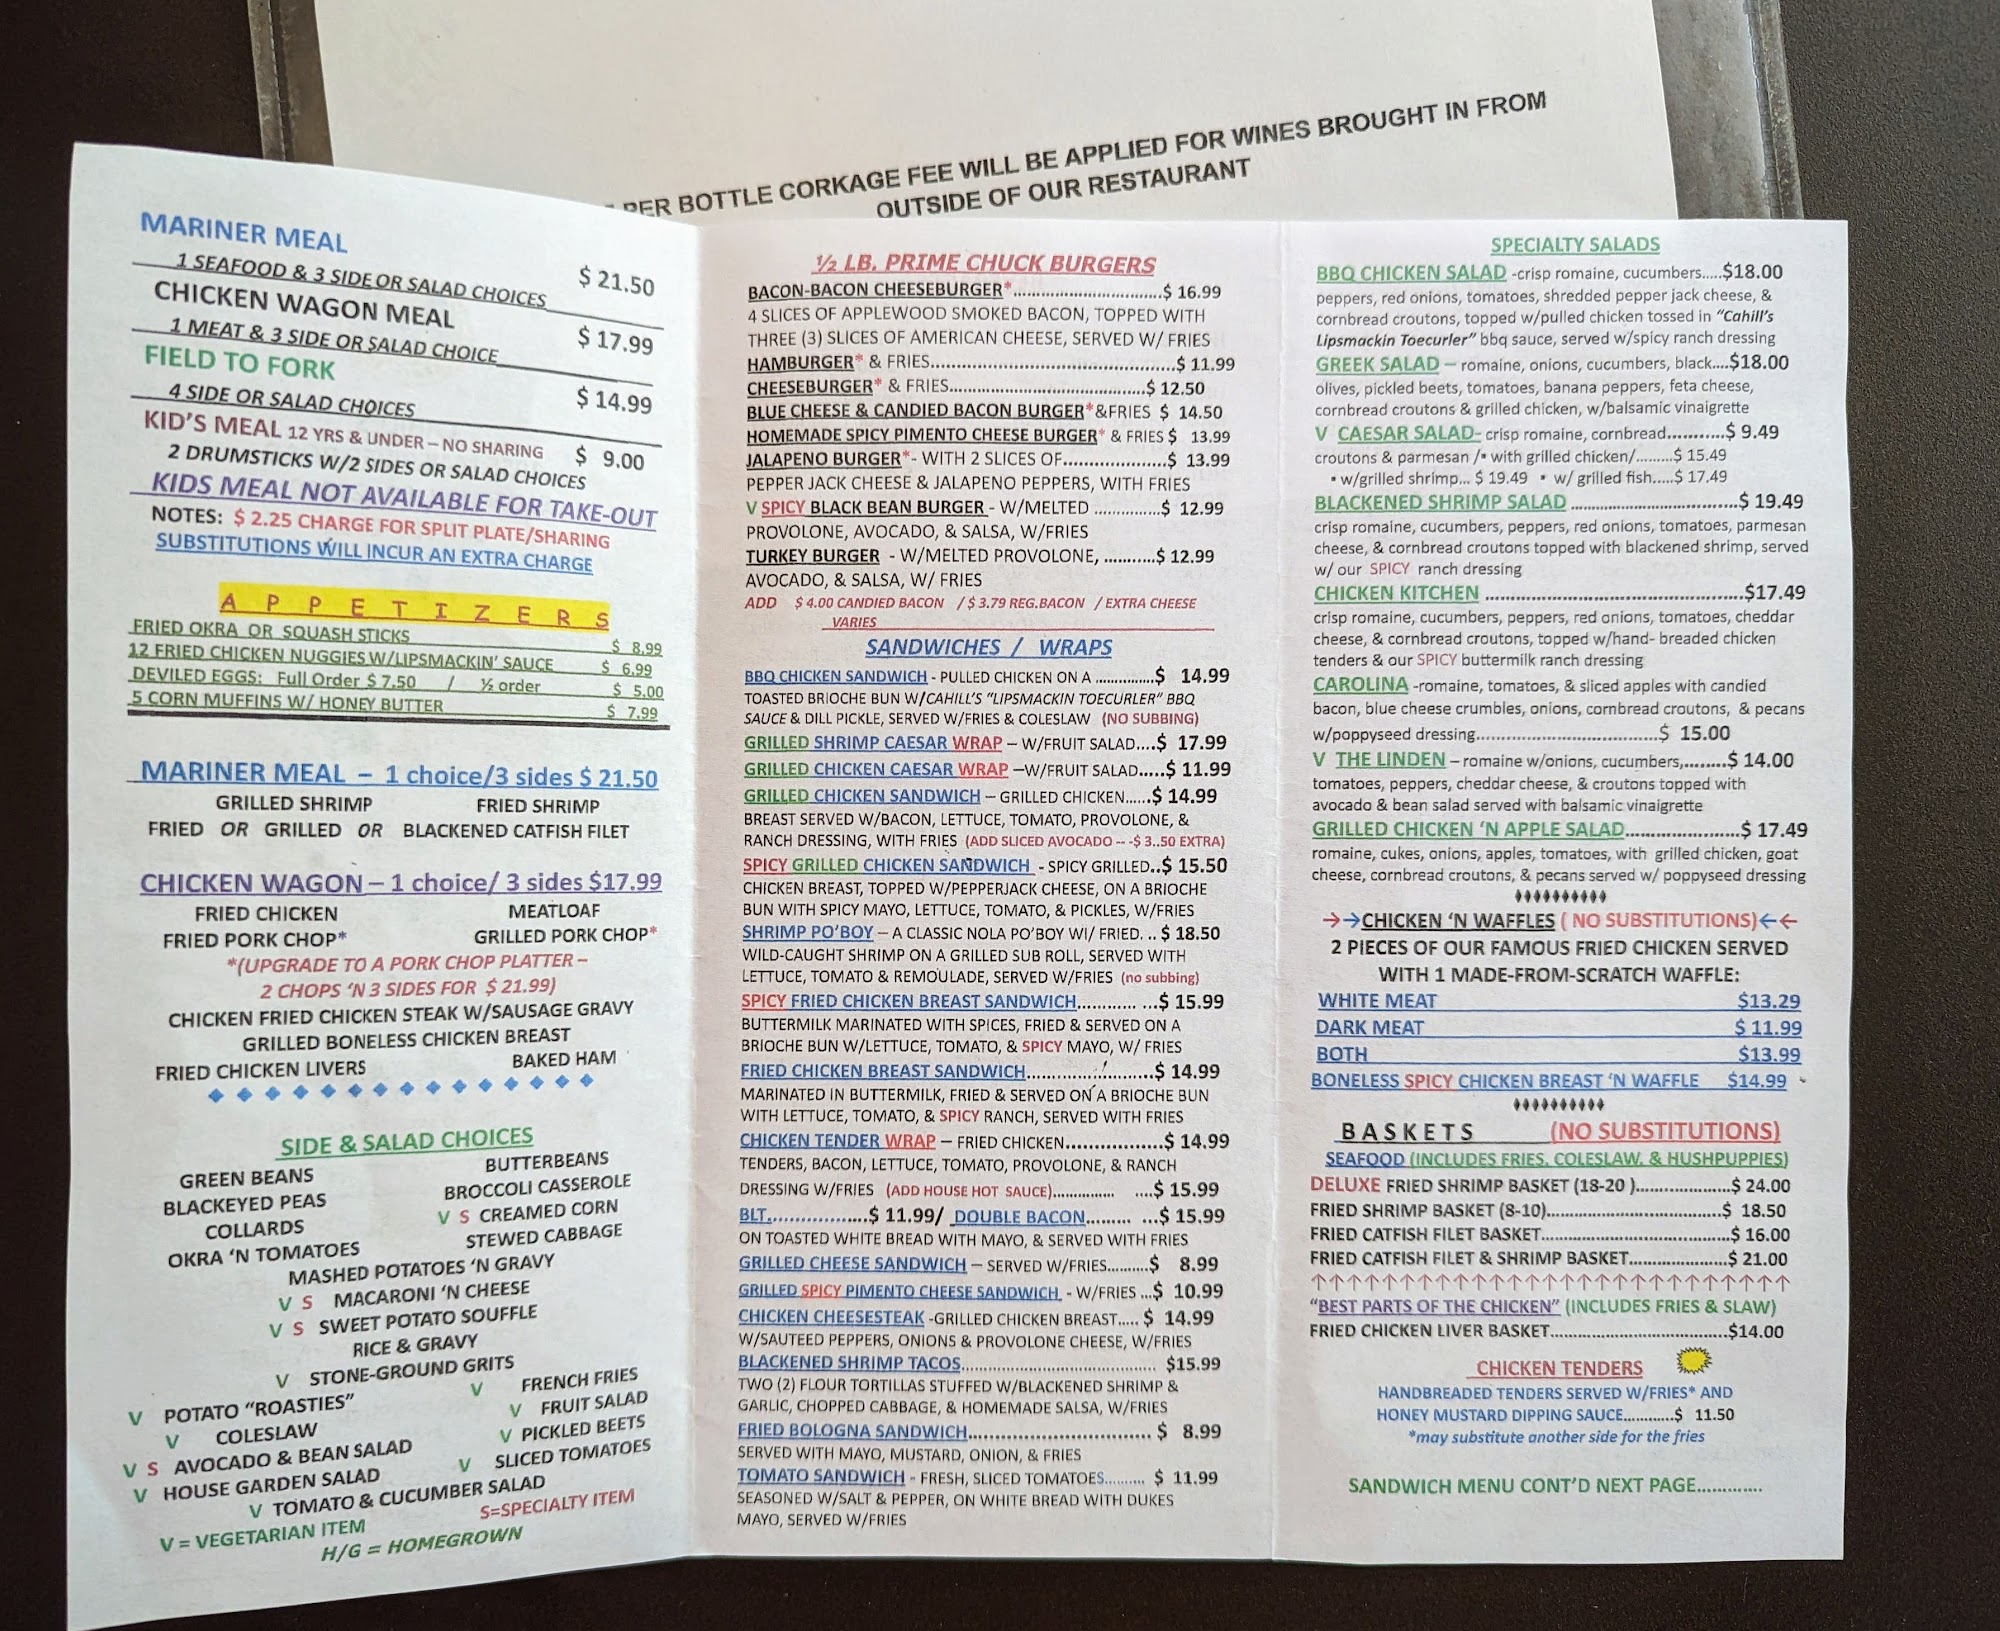 PER BOTTLE CORKAGE FEE WILL BE APPLIED FOR WINES BROUGHT IN FROM
OUTSIDE OF OUR RESTAURANT
MARINER MEAL
1 SEAFOOD & 3 SIDE OR SALAD CHOICES $ 21.50
CHICKEN WAGON MEAL
1 MEAT & 3 SIDE OR SALAD CHOICE $ 17.99
FIELD TO FORK
4 SIDE OR SALAD CHOICES $ 14.99
KID'S MEAL 12 YRS & UNDER – NO SHARING
2 DRUMSTICKS W/2 SIDES OR SALAD CHOICES $ 9.00
KIDS MEAL NOT AVAILABLE FOR TAKE-OUT
NOTES: $ 2.25 CHARGE FOR SPLIT PLATE/SHARING
SUBSTITUTIONS WILL INCUR AN EXTRA CHARGE
APPETIZERS
FRIED OKRA OR SQUASH STICKS $ 8.99
12 FRIED CHICKEN NUGGIES W/LIPSMACKIN' SAUCE $ 6.99
DEVILED EGGS: Full Order $ 7.50 / ½ order $ 5.00
5 CORN MUFFINS W/ HONEY BUTTER $ 7.99
MARINER MEAL – 1 choice/3 sides $ 21.50
GRILLED SHRIMP FRIED SHRIMP
FRIED OR GRILLED OR BLACKENED CATFISH FILET
CHICKEN WAGON – 1 choice/ 3 sides $17.99
FRIED CHICKEN MEATLOAF
FRIED PORK CHOP* GRILLED PORK CHOP*
*(UPGRADE TO A PORK CHOP PLATTER –
2 CHOPS 'N 3 SIDES FOR $ 21.99)
CHICKEN FRIED CHICKEN STEAK W/SAUSAGE GRAVY
GRILLED BONELESS CHICKEN BREAST
FRIED CHICKEN LIVERS BAKED HAM
SIDE & SALAD CHOICES
GREEN BEANS BUTTERBEANS
BLACKEYED PEAS BROCCOLI CASSEROLE
COLLARDS V S CREAMED CORN
OKRA 'N TOMATOES STEWED CABBAGE
MASHED POTATOES 'N GRAVY
V S MACARONI 'N CHEESE
V S SWEET POTATO SOUFFLE
RICE & GRAVY
V STONE-GROUND GRITS
V POTATO "ROASTIES" V FRENCH FRIES
V COLESLAW V FRUIT SALAD
V S AVOCADO & BEAN SALAD V PICKLED BEETS
V HOUSE GARDEN SALAD V SLICED TOMATOES
V TOMATO & CUCUMBER SALAD
V = VEGETARIAN ITEM S=SPECIALTY ITEM
H/G = HOMEGROWN
½ LB. PRIME CHUCK BURGERS
BACON-BACON CHEESEBURGER*..............................$ 16.99
4 SLICES OF APPLEWOOD SMOKED BACON, TOPPED WITH
THREE (3) SLICES OF AMERICAN CHEESE, SERVED W/ FRIES
HAMBURGER* & FRIES..................................................$ 11.99
CHEESEBURGER* & FRIES........................................$ 12.50
BLUE CHEESE & CANDIED BACON BURGER*&FRIES $ 14.50
HOMEMADE SPICY PIMENTO CHEESE BURGER* & FRIES $ 13.99
JALAPENO BURGER*- WITH 2 SLICES OF.....................$ 13.99
PEPPER JACK CHEESE & JALAPENO PEPPERS, WITH FRIES
V SPICY BLACK BEAN BURGER - W/MELTED ..............$ 12.99
PROVOLONE, AVOCADO, & SALSA, W/FRIES
TURKEY BURGER - W/MELTED PROVOLONE, ...........$ 12.99
AVOCADO, & SALSA, W/ FRIES
ADD $ 4.00 CANDIED BACON / $ 3.79 REG.BACON / EXTRA CHEESE
VARIES
SANDWICHES / WRAPS
BBQ CHICKEN SANDWICH - PULLED CHICKEN ON A ...............$ 14.99
TOASTED BRIOCHE BUN W/CAHILL'S "LIPSMACKIN TOECURLER" BBQ
SAUCE & DILL PICKLE, SERVED W/FRIES & COLESLAW (NO SUBBING)
GRILLED SHRIMP CAESAR WRAP – W/FRUIT SALAD....$ 17.99
GRILLED CHICKEN CAESAR WRAP –W/FRUIT SALAD.....$ 11.99
GRILLED CHICKEN SANDWICH – GRILLED CHICKEN......$ 14.99
BREAST SERVED W/BACON, LETTUCE, TOMATO, PROVOLONE, &
RANCH DRESSING, WITH FRIES (ADD SLICED AVOCADO -- -$ 3..50 EXTRA)
SPICY GRILLED CHICKEN SANDWICH - SPICY GRILLED..$ 15.50
CHICKEN BREAST, TOPPED W/PEPPERJACK CHEESE, ON A BRIOCHE
BUN WITH SPICY MAYO, LETTUCE, TOMATO, & PICKLES, W/FRIES
SHRIMP PO'BOY – A CLASSIC NOLA PO'BOY WI/ FRIED. .. $ 18.50
WILD-CAUGHT SHRIMP ON A GRILLED SUB ROLL, SERVED WITH
LETTUCE, TOMATO & REMOULADE, SERVED W/FRIES (no subbing)
SPICY FRIED CHICKEN BREAST SANDWICH............ ...$ 15.99
BUTTERMILK MARINATED WITH SPICES, FRIED & SERVED ON A
BRIOCHE BUN W/LETTUCE, TOMATO, & SPICY MAYO, W/ FRIES
FRIED CHICKEN BREAST SANDWICH.........................$ 14.99
MARINATED IN BUTTERMILK, FRIED & SERVED ON A BRIOCHE BUN
WITH LETTUCE, TOMATO, & SPICY RANCH, SERVED WITH FRIES
CHICKEN TENDER WRAP – FRIED CHICKEN...................$ 14.99
TENDERS, BACON, LETTUCE, TOMATO, PROVOLONE, & RANCH
DRESSING W/FRIES (ADD HOUSE HOT SAUCE).............. ....$ 15.99
BLT..................$ 11.99/ DOUBLE BACON......... ...$ 15.99
ON TOASTED WHITE BREAD WITH MAYO, & SERVED WITH FRIES
GRILLED CHEESE SANDWICH – SERVED W/FRIES.........$ 8.99
GRILLED SPICY PIMENTO CHEESE SANDWICH - W/FRIES ...$ 10.99
CHICKEN CHEESESTEAK -GRILLED CHICKEN BREAST..... $ 14.99
W/SAUTEED PEPPERS, ONIONS & PROVOLONE CHEESE, W/FRIES
BLACKENED SHRIMP TACOS...................................... $15.99
TWO (2) FLOUR TORTILLAS STUFFED W/BLACKENED SHRIMP &
GARLIC, CHOPPED CABBAGE, & HOMEMADE SALSA, W/FRIES
FRIED BOLOGNA SANDWICH................................... $ 8.99
SERVED WITH MAYO, MUSTARD, ONION, & FRIES
TOMATO SANDWICH - FRESH, SLICED TOMATOES.......... $ 11.99
SEASONED W/SALT & PEPPER, ON WHITE BREAD WITH DUKES
MAYO, SERVED W/FRIES
SPECIALTY SALADS
BBQ CHICKEN SALAD -crisp romaine, cucumbers.....$18.00
peppers, red onions, tomatoes, shredded pepper jack cheese, &
cornbread croutons, topped w/pulled chicken tossed in "Cahill's
Lipsmackin Toecurler" bbq sauce, served w/spicy ranch dressing
GREEK SALAD – romaine, onions, cucumbers, black....$18.00
olives, pickled beets, tomatoes, banana peppers, feta cheese,
cornbread croutons & grilled chicken, w/balsamic vinaigrette
V CAESAR SALAD- crisp romaine, cornbread............$ 9.49
croutons & parmesan /• with grilled chicken/.........$ 15.49
• w/grilled shrimp... $ 19.49 • w/ grilled fish.....$ 17.49
BLACKENED SHRIMP SALAD ....................................$ 19.49
crisp romaine, cucumbers, peppers, red onions, tomatoes, parmesan
cheese, & cornbread croutons topped with blackened shrimp, served
w/ our SPICY ranch dressing
CHICKEN KITCHEN .....................................................$17.49
crisp romaine, cucumbers, peppers, red onions, tomatoes, cheddar
cheese, & cornbread croutons, topped w/hand- breaded chicken
tenders & our SPICY buttermilk ranch dressing
CAROLINA -romaine, tomatoes, & sliced apples with candied
bacon, blue cheese crumbles, onions, cornbread croutons, & pecans
w/poppyseed dressing.......................................$ 15.00
V THE LINDEN – romaine w/onions, cucumbers,........$ 14.00
tomatoes, peppers, cheddar cheese, & croutons topped with
avocado & bean salad served with balsamic vinaigrette
GRILLED CHICKEN 'N APPLE SALAD........................$ 17.49
romaine, cukes, onions, apples, tomatoes, with grilled chicken, goat
cheese, cornbread croutons, & pecans served w/ poppyseed dressing
→→CHICKEN 'N WAFFLES ( NO SUBSTITUTIONS)←←
2 PIECES OF OUR FAMOUS FRIED CHICKEN SERVED
WITH 1 MADE-FROM-SCRATCH WAFFLE:
WHITE MEAT $13.29
DARK MEAT $ 11.99
BOTH $13.99
BONELESS SPICY CHICKEN BREAST 'N WAFFLE $14.99
BASKETS (NO SUBSTITUTIONS)
SEAFOOD (INCLUDES FRIES, COLESLAW, & HUSHPUPPIES)
DELUXE FRIED SHRIMP BASKET (18-20 )....................$ 24.00
FRIED SHRIMP BASKET (8-10)....................................$ 18.50
FRIED CATFISH FILET BASKET.......................................$ 16.00
FRIED CATFISH FILET & SHRIMP BASKET.....................$ 21.00
↑↑↑↑↑↑↑↑↑↑↑↑↑↑↑↑↑↑↑↑↑↑↑↑↑↑↑↑↑
"BEST PARTS OF THE CHICKEN" (INCLUDES FRIES & SLAW)
FRIED CHICKEN LIVER BASKET.....................................$14.00
CHICKEN TENDERS
HANDBREADED TENDERS SERVED W/FRIES* AND
HONEY MUSTARD DIPPING SAUCE............$ 11.50
*may substitute another side for the fries
SANDWICH MENU CONT'D NEXT PAGE.............